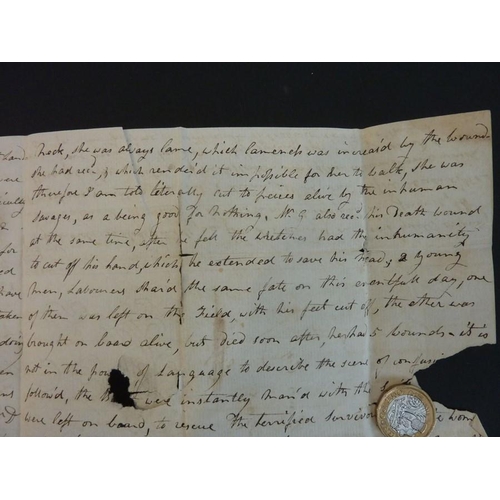 Neck, she was always Lame, which Lameness was increas'd by the wound
she had rec'd, & which render'd it impossible for her to walk, she was
therefore I am told literally cut to pieces alive by the inhuman
Savages, as a being good for nothing, Mr G also rec'd his Death wound
at the same time, after he fell the wretches had the inhumanity
to cut off his hand, which he extended to save his Head, 2 young
Men, Labourers shard the same fate on this eventfull day, one
of them was left on the Field, with his feet cut off, the other was
brought on board alive, but died soon after he has 5 wounds – it is
not in the power of Language to describe the scene of confusi
follow'd, the were instantly man'd with the
were left on board, to rescue the terrified survivor